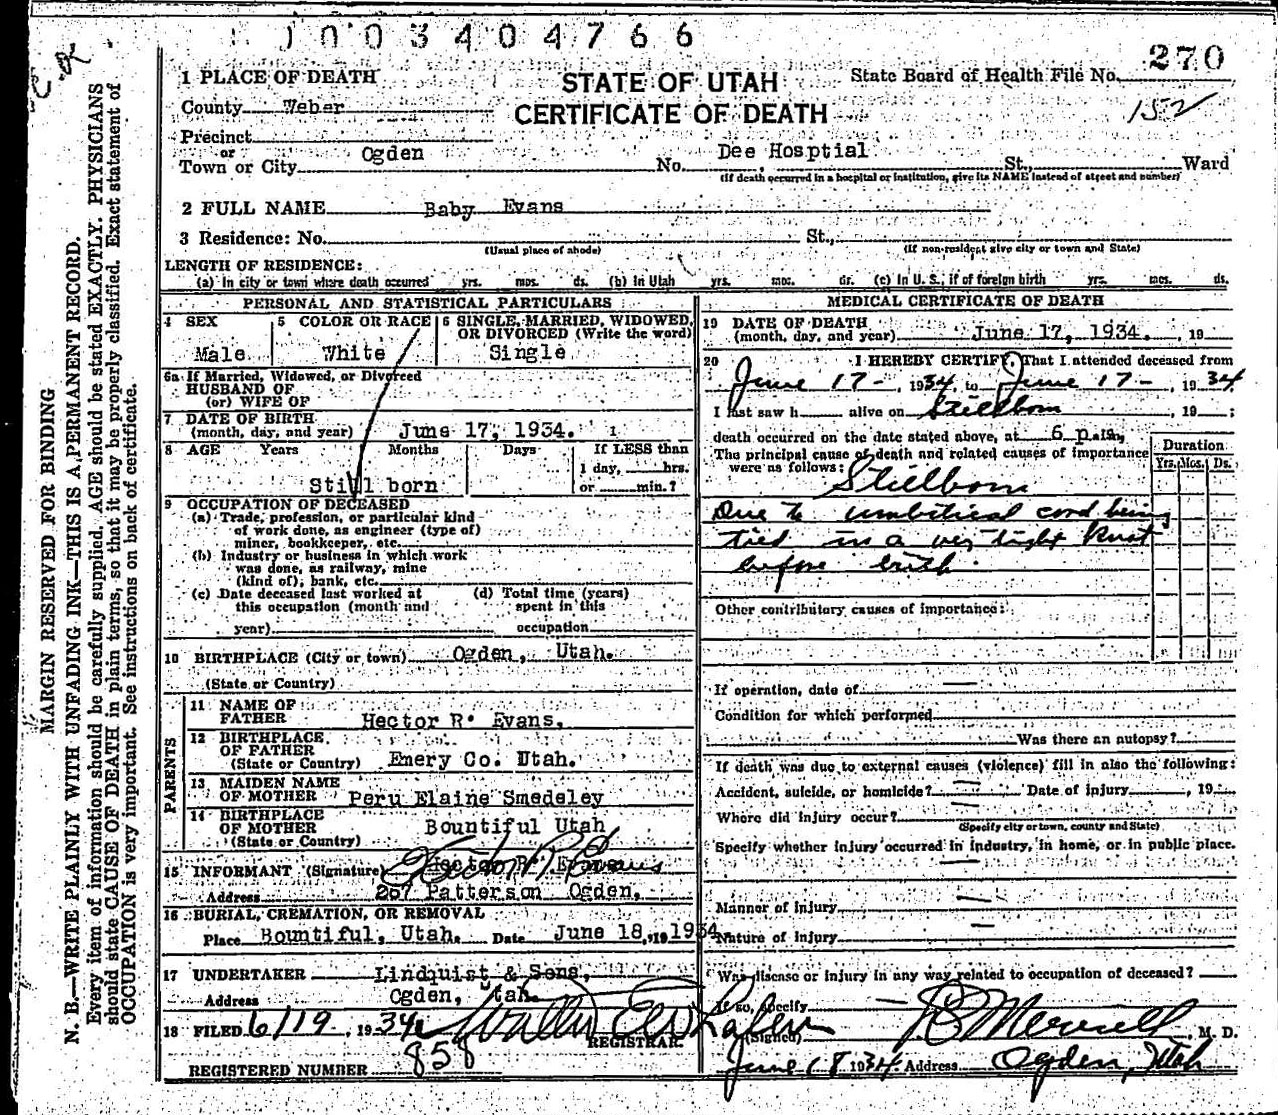 1003404766
270
1 PLACE OF DEATH
STATE OF UTAH
State Board of Health File No.
County Weber
CERTIFICATE OF DEATH
152
Precinct
or
Town or City Ogden No. Dee Hosptial St., Ward
(If death occurred in a hospital or institution, give its NAME instead of street and number)
2 FULL NAME Baby Evans
3 Residence: No. St.,
(Usual place of abode) (If non-resident give city or town and State)
LENGTH OF RESIDENCE:
(a) In city or town where death occurred yrs. mos. ds. (b) In Utah yrs. mos. ds. (c) In U. S., if of foreign birth yrs. mos. ds.
PERSONAL AND STATISTICAL PARTICULARS
4 SEX 5 COLOR OR RACE 6 SINGLE, MARRIED, WIDOWED,
OR DIVORCED (Write the word)
Male White Single
6a If Married, Widowed, or Divorced
HUSBAND OF
(or) WIFE OF
7 DATE OF BIRTH
(month, day, and year) June 17, 1934.
8 AGE Years Months Days If LESS than
1 day, hrs.
Still born or min.?
9 OCCUPATION OF DECEASED
(a) Trade, profession, or particular kind
of work done, as engineer (type of)
miner, bookkeeper, etc.
(b) Industry or business in which work
was done, as railway, mine
(kind of), bank, etc.
(c) Date deceased last worked at (d) Total time (years)
this occupation (month and spent in this
year) occupation
10 BIRTHPLACE (City or town) Ogden, Utah.
(State or Country)
PARENTS
11 NAME OF
FATHER Hector R. Evans,
12 BIRTHPLACE
OF FATHER
(State or Country) Emery Co. Utah.
13 MAIDEN NAME
OF MOTHER Peru Elaine Smedeley
14 BIRTHPLACE
OF MOTHER Bountiful Utah
(State or Country)
15 INFORMANT (Signature) Hector R. Evans
Hector R. Evans
Address 267 Patterson Ogden,
16 BURIAL, CREMATION, OR REMOVAL
Place Bountiful, Utah. Date June 18, 19 1934
17 UNDERTAKER Lindquist & Sons,
Address Ogden, Utah.
18 FILED 6/19, 1934
REGISTRAR.
REGISTERED NUMBER 858
MEDICAL CERTIFICATE OF DEATH
19 DATE OF DEATH
(month, day, and year) June 17, 1934. 19
20 I HEREBY CERTIFY, That I attended deceased from
June 17-, 1934, to June 17-, 1934
I last saw h alive on Stillborn, 19 ;
death occurred on the date stated above, at 6 p.m.
The principal cause of death and related causes of importance
were as follows: Duration
Yrs. Mos. Ds.
Stillborn
Due to umbilical cord being
tied in a very tight knot
before birth.
Other contributory causes of importance:
If operation, date of
Condition for which performed
Was there an autopsy?
If death was due to external causes (violence) fill in also the following:
Accident, suicide, or homicide? Date of injury, 19
Where did injury occur?
(Specify city or town, county and State)
Specify whether injury occurred in industry, in home, or in public place.
Manner of injury
Nature of injury
Was disease or injury in any way related to occupation of deceased?
If so, specify
(Signed) M. D.
June 18 1934 Address Ogden, Utah
MARGIN RESERVED FOR BINDING
N. B.—WRITE PLAINLY WITH UNFADING INK—THIS IS A PERMANENT RECORD.
Every item of information should be carefully supplied. AGE should be stated EXACTLY. PHYSICIANS
should state CAUSE OF DEATH in plain terms, so that it may be properly classified. Exact statement of
OCCUPATION is very important. See instructions on back of certificate.